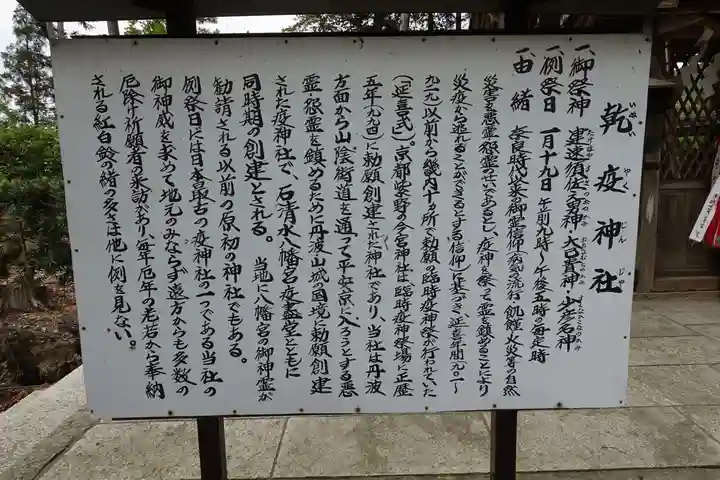 乾疫神社
一、御祭神 建速須佐之男神・大己貴神・少彦名神
一、例祭日 一月十九日 午前九時〜午後五時の毎定時
一、由緒 奈良時代以来の御霊信仰(病気の流行・飢饉・火災等の自然
災害を悪霊・怨霊のせいであるとし、疫神を祭って霊を鎮めることにより
災疫から逃れることができるとする信仰)に基づき、延喜年間(九〇一〜
九二二)以前から畿内十ヶ所で勅願の臨時疫神祭が行われていた
(延喜式)。京都紫野の今宮神社は臨時疫神祭場に正歴
五年(九九四)に勅願創建された神社であり、当社は丹波
方面から山陰街道を通って平安京に入ろうとする悪
霊・怨霊を鎮めるために丹波・山城の国境に勅願創建
された疫神社で、石清水八幡宮疫塞堂とともに
同時期の創建とされる。当地に八幡宮の御神霊が
勧請される以前の原初の神社でもある。
例祭日には日本最古の疫神社の一つである当社の
御神威を求めて地元のみならず遠方からも多数の
厄除け祈願者の来訪があり、毎年厄年の老若から奉納
される紅白鈴の緒の多さは他に例を見ない。